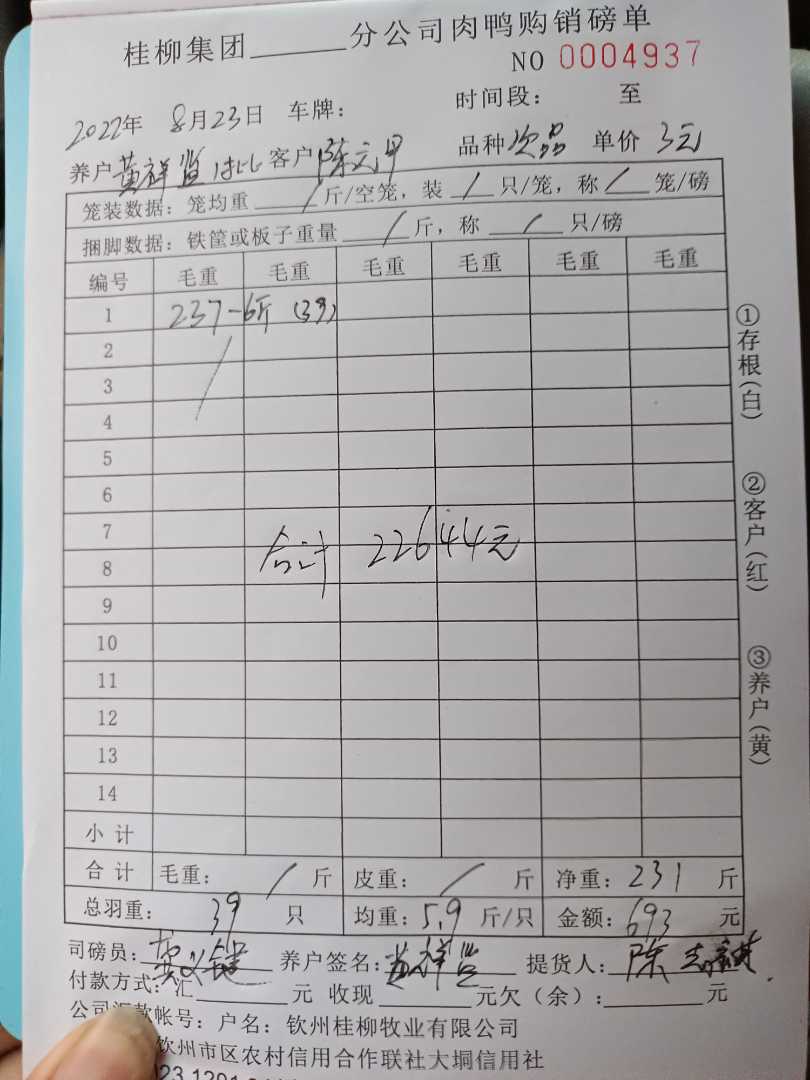 桂柳集团______分公司肉鸭购销磅单
NO 0004937
2022年 8月23日 车牌: 时间段: 至
养户 黄祥监 客户 陈元甲 品种 次品 单价 3元
笼装数据: 笼均重 / 斤/空笼, 装 / 只/笼, 称 / 笼/磅
捆脚数据: 铁筐或板子重量 / 斤, 称 / 只/磅
编号 毛重 毛重 毛重 毛重 毛重 毛重
1 237-6斤 (39)
2 /
3
4
5
6
7
8
合计 22644元
9
10
11
12
13
14
小计
合计 毛重: / 斤 皮重: / 斤 净重: 231 斤
总羽重: 39 只 均重: 5.9 斤/只 金额: 693 元
司磅员: 养户签名: 黄祥监 提货人: 陈
付款方式: 汇______元 收现______元欠(余): ______元
公司汇款帐号: 户名: 钦州桂柳牧业有限公司
钦州市区农村信用合作联社大垌信用社
①存根(白)
②客户(红)
③养户(黄)